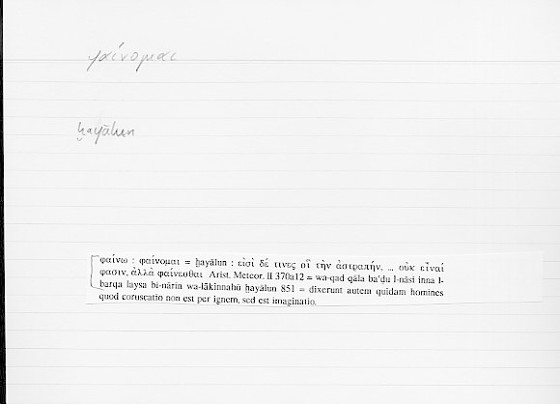 φαίνομαι
ḫayālun
φαίνω : φαίνομαι = ḫayālun : εἰσὶ δέ τινες οἳ τὴν ἀστραπήν, ... οὐκ εἶναί
φασιν, ἀλλὰ φαίνεσθαι Arist. Meteor. II 370a12 = wa-qad qāla baʿḍu l-nāsi inna l-
barqa laysa bi-nārin wa-lākinnahū ḫayālun 851 = dixerunt autem quidam homines
quod coruscatio non est per ignem, sed est imaginatio.